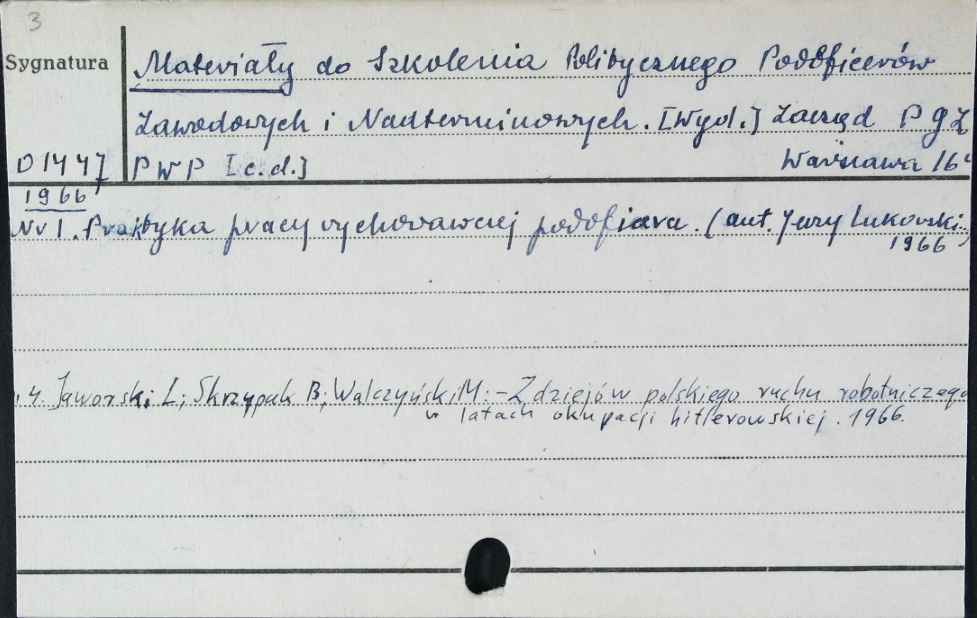 3
Sygnatura
Materiały do Szkolenia Politycznego Podoficerów
Zawodowych i Nadterminowych. [Wyd.] Zarząd P
D 1447 PWP [c.d.] Warszawa
1966
Nr 1. Praktyka pracy wychowawczej podoficera. (aut. Jerzy Lukowski)
1966
4. Jaworski L; Skrzypak B; Walczyński M: - Z dziejów polskiego ruchu robotniczego
w latach okupacji hitlerowskiej. 1966.